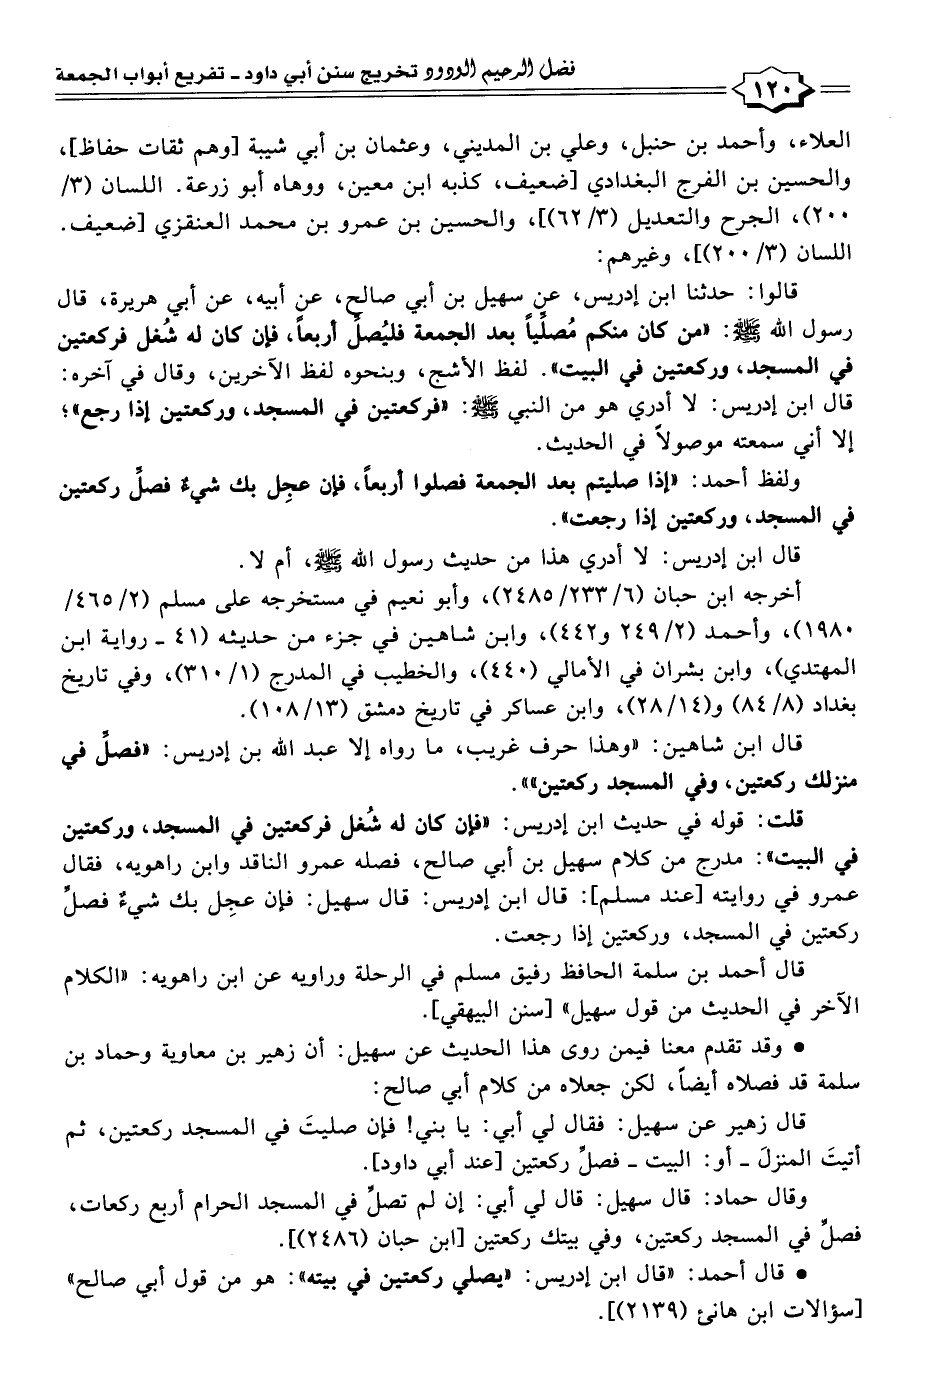 فضل الرحيم الودود تخريج سنن أبي داود ـ تفريع أبواب الجمعة
١٢٠
العلاء، وأحمد بن حنبل، وعلي بن المديني، وعثمان بن أبي شيبة [وهم ثقات حفاظ]،
والحسين بن الفرج البغدادي [ضعيف، كذبه ابن معين، ووهاه أبو زرعة. اللسان (٣/
٢٠٠)، الجرح والتعديل (٣/ ٦٢)]، والحسين بن عمرو بن محمد العنقزي [ضعيف.
اللسان (٣/ ٢٠٠)]، وغيرهم:
قالوا: حدثنا ابن إدريس، عن سهيل بن أبي صالح، عن أبيه، عن أبي هريرة، قال
رسول الله ﷺ: «من كان منكم مُصلِّياً بعد الجمعة فليُصلِّ أربعاً، فإن كان له شُغل فركعتين
في المسجد، وركعتين في البيت». لفظ الأشج، وبنحوه لفظ الآخرين، وقال في آخره:
قال ابن إدريس: لا أدري هو من النبي ﷺ: «فركعتين في المسجد، وركعتين إذا رجع»؛
إلا أني سمعته موصولاً في الحديث.
ولفظ أحمد: «إذا صليتم بعد الجمعة فصلوا أربعاً، فإن عجِل بك شيءٌ فصلِّ ركعتين
في المسجد، وركعتين إذا رجعت».
قال ابن إدريس: لا أدري هذا من حديث رسول الله ﷺ، أم لا.
أخرجه ابن حبان (٦/ ٢٣٣/ ٢٤٨٥)، وأبو نعيم في مستخرجه على مسلم (٢/ ٤٦٥/
١٩٨٠)، وأحمد (٢/ ٢٤٩ و٤٤٢)، وابن شاهين في جزء من حديثه (٤١ ـ رواية ابن
المهتدي)، وابن بشران في الأمالي (٤٤٠)، والخطيب في المدرج (١/ ٣١٠)، وفي تاريخ
بغداد (٨/ ٨٤) و(١٤/ ٢٨)، وابن عساكر في تاريخ دمشق (١٣/ ١٠٨).
قال ابن شاهين: «وهذا حرف غريب، ما رواه إلا عبد الله بن إدريس: «فصلِّ في
منزلك ركعتين، وفي المسجد ركعتين»».
قلت: قوله في حديث ابن إدريس: «فإن كان له شُغل فركعتين في المسجد، وركعتين
في البيت»: مدرج من كلام سهيل بن أبي صالح، فصله عمرو الناقد وابن راهويه، فقال
عمرو في روايته [عند مسلم]: قال ابن إدريس: قال سهيل: فإن عجِل بك شيءٌ فصلِّ
ركعتين في المسجد، وركعتين إذا رجعت.
قال أحمد بن سلمة الحافظ رفيق مسلم في الرحلة وراويه عن ابن راهويه: «الكلام
الآخر في الحديث من قول سهيل» [سنن البيهقي].
• وقد تقدم معنا فيمن روى هذا الحديث عن سهيل: أن زهير بن معاوية وحماد بن
سلمة قد فصلاه أيضاً، لكن جعلاه من كلام أبي صالح:
قال زهير عن سهيل: فقال لي أبي: يا بني! فإن صليتَ في المسجد ركعتين، ثم
أتيتَ المنزلَ ـ أو: البيت ـ فصلِّ ركعتين [عند أبي داود].
وقال حماد: قال سهيل: قال لي أبي: إن لم تصلِّ في المسجد الحرام أربع ركعات،
فصلِّ في المسجد ركعتين، وفي بيتك ركعتين [ابن حبان (٢٤٨٦)].
• قال أحمد: «قال ابن إدريس: «يصلي ركعتين في بيته»: هو من قول أبي صالح»
[سؤالات ابن هانئ (٢١٣٩)].